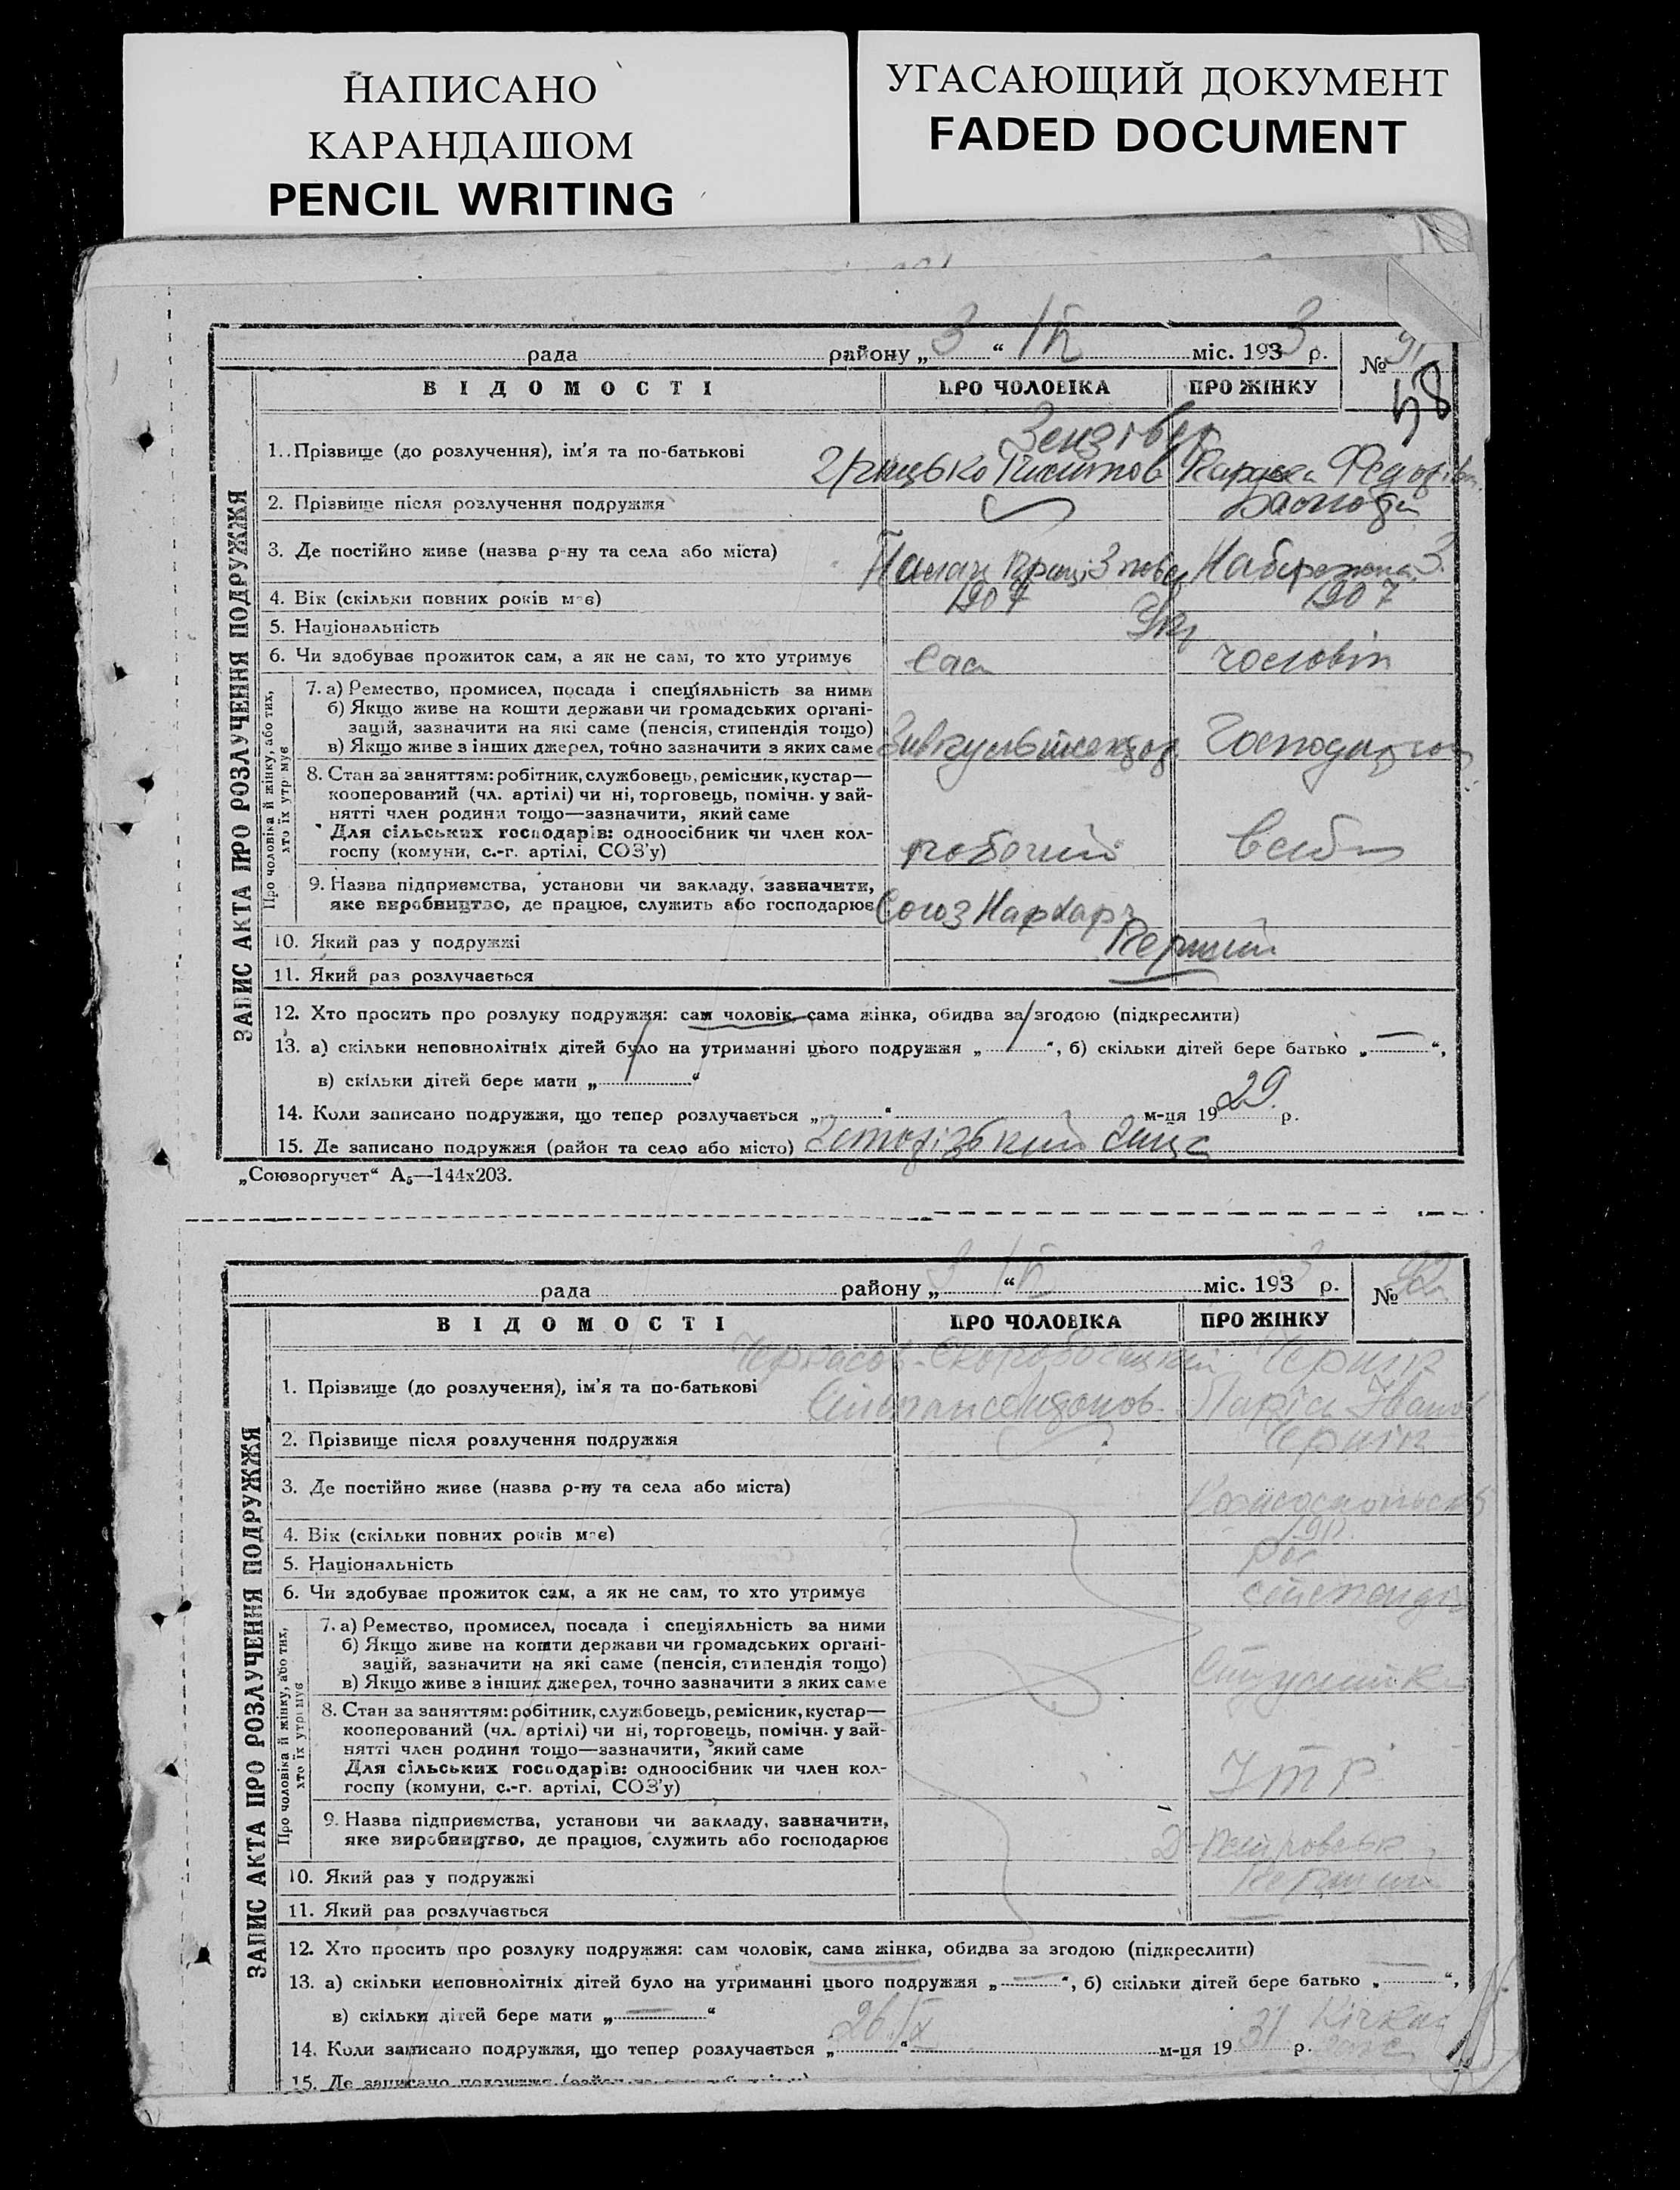 НАПИСАНО
КАРАНДАШОМ
PENCIL WRITING
УГАСАЮЩИЙ ДОКУМЕНТ
FADED DOCUMENT
рада району „3“ міс. 1933 р. № 91
48
ЗАПИС АКТА ПРО РОЗЛУЧЕННЯ ПОДРУЖЖЯ
ВІДОМОСТІ ПРО ЧОЛОВІКА ПРО ЖІНКУ
1. Прізвище (до розлучення), ім'я та по-батькові
2. Прізвище після розлучення подружжя
3. Де постійно живе (назва р-ну та села або міста)
4. Вік (скільки повних років має) 1907 1907
5. Національність Укр
6. Чи здобуває прожиток сам, а як не сам, то хто утримує сам чоловік
Про чоловіка й жінку, або тих,
хто їх утримує
7. а) Ремество, промисел, посада і спеціяльність за ними
б) Якщо живе на кошти держави чи громадських органі-
зацій, зазначити на які саме (пенсія, стипендія тощо)
в) Якщо живе з інших джерел, точно зазначити з яких саме
8. Стан за заняттям: робітник, службовець, ремісник, кустар—
кооперований (чл. артілі) чи ні, торговець, помічн. у зай-
нятті член родини тощо—зазначити, який саме
Для сільських господарів: одноосібник чи член кол-
госпу (комуни, с.-г. артілі, СОЗ'у) робочий
9. Назва підприємства, установи чи закладу, зазначити,
яке виробництво, де працює, служить або господарює Союз Нархарч
10. Який раз у подружжі Перший
11. Який раз розлучається
12. Хто просить про розлуку подружжя: сам чоловік, сама жінка, обидва за згодою (підкреслити)
13. а) скільки неповнолітніх дітей було на утриманні цього подружжя „ “, б) скільки дітей бере батько „—“,
в) скільки дітей бере мати „ “
14. Коли записано подружжя, що тепер розлучається „ “ м-ця 1929 р.
15. Де записано подружжя (район та село або місто)
„Союзоргучет“ А₅—144х203.
рада району „3“ міс. 1933 р. № 92
ЗАПИС АКТА ПРО РОЗЛУЧЕННЯ ПОДРУЖЖЯ
ВІДОМОСТІ ПРО ЧОЛОВІКА ПРО ЖІНКУ
1. Прізвище (до розлучення), ім'я та по-батькові
2. Прізвище після розлучення подружжя
3. Де постійно живе (назва р-ну та села або міста)
4. Вік (скільки повних років має)
5. Національність
6. Чи здобуває прожиток сам, а як не сам, то хто утримує
Про чоловіка й жінку, або тих,
хто їх утримує
7. а) Ремество, промисел, посада і спеціяльність за ними
б) Якщо живе на кошти держави чи громадських органі-
зацій, зазначити на які саме (пенсія, стипендія тощо)
в) Якщо живе з інших джерел, точно зазначити з яких саме
8. Стан за заняттям: робітник, службовець, ремісник, кустар—
кооперований (чл. артілі) чи ні, торговець, помічн. у зай-
нятті член родини тощо—зазначити, який саме
Для сільських господарів: одноосібник чи член кол-
госпу (комуни, с.-г. артілі, СОЗ'у)
9. Назва підприємства, установи чи закладу, зазначити,
яке виробництво, де працює, служить або господарює
10. Який раз у подружжі Перший
11. Який раз розлучається
12. Хто просить про розлуку подружжя: сам чоловік, сама жінка, обидва за згодою (підкреслити)
13. а) скільки неповнолітніх дітей було на утриманні цього подружжя „—“, б) скільки дітей бере батько „—“,
в) скільки дітей бере мати „—“
14. Коли записано подружжя, що тепер розлучається „26“ IX м-ця 1931 р.
15. Де записано подружжя